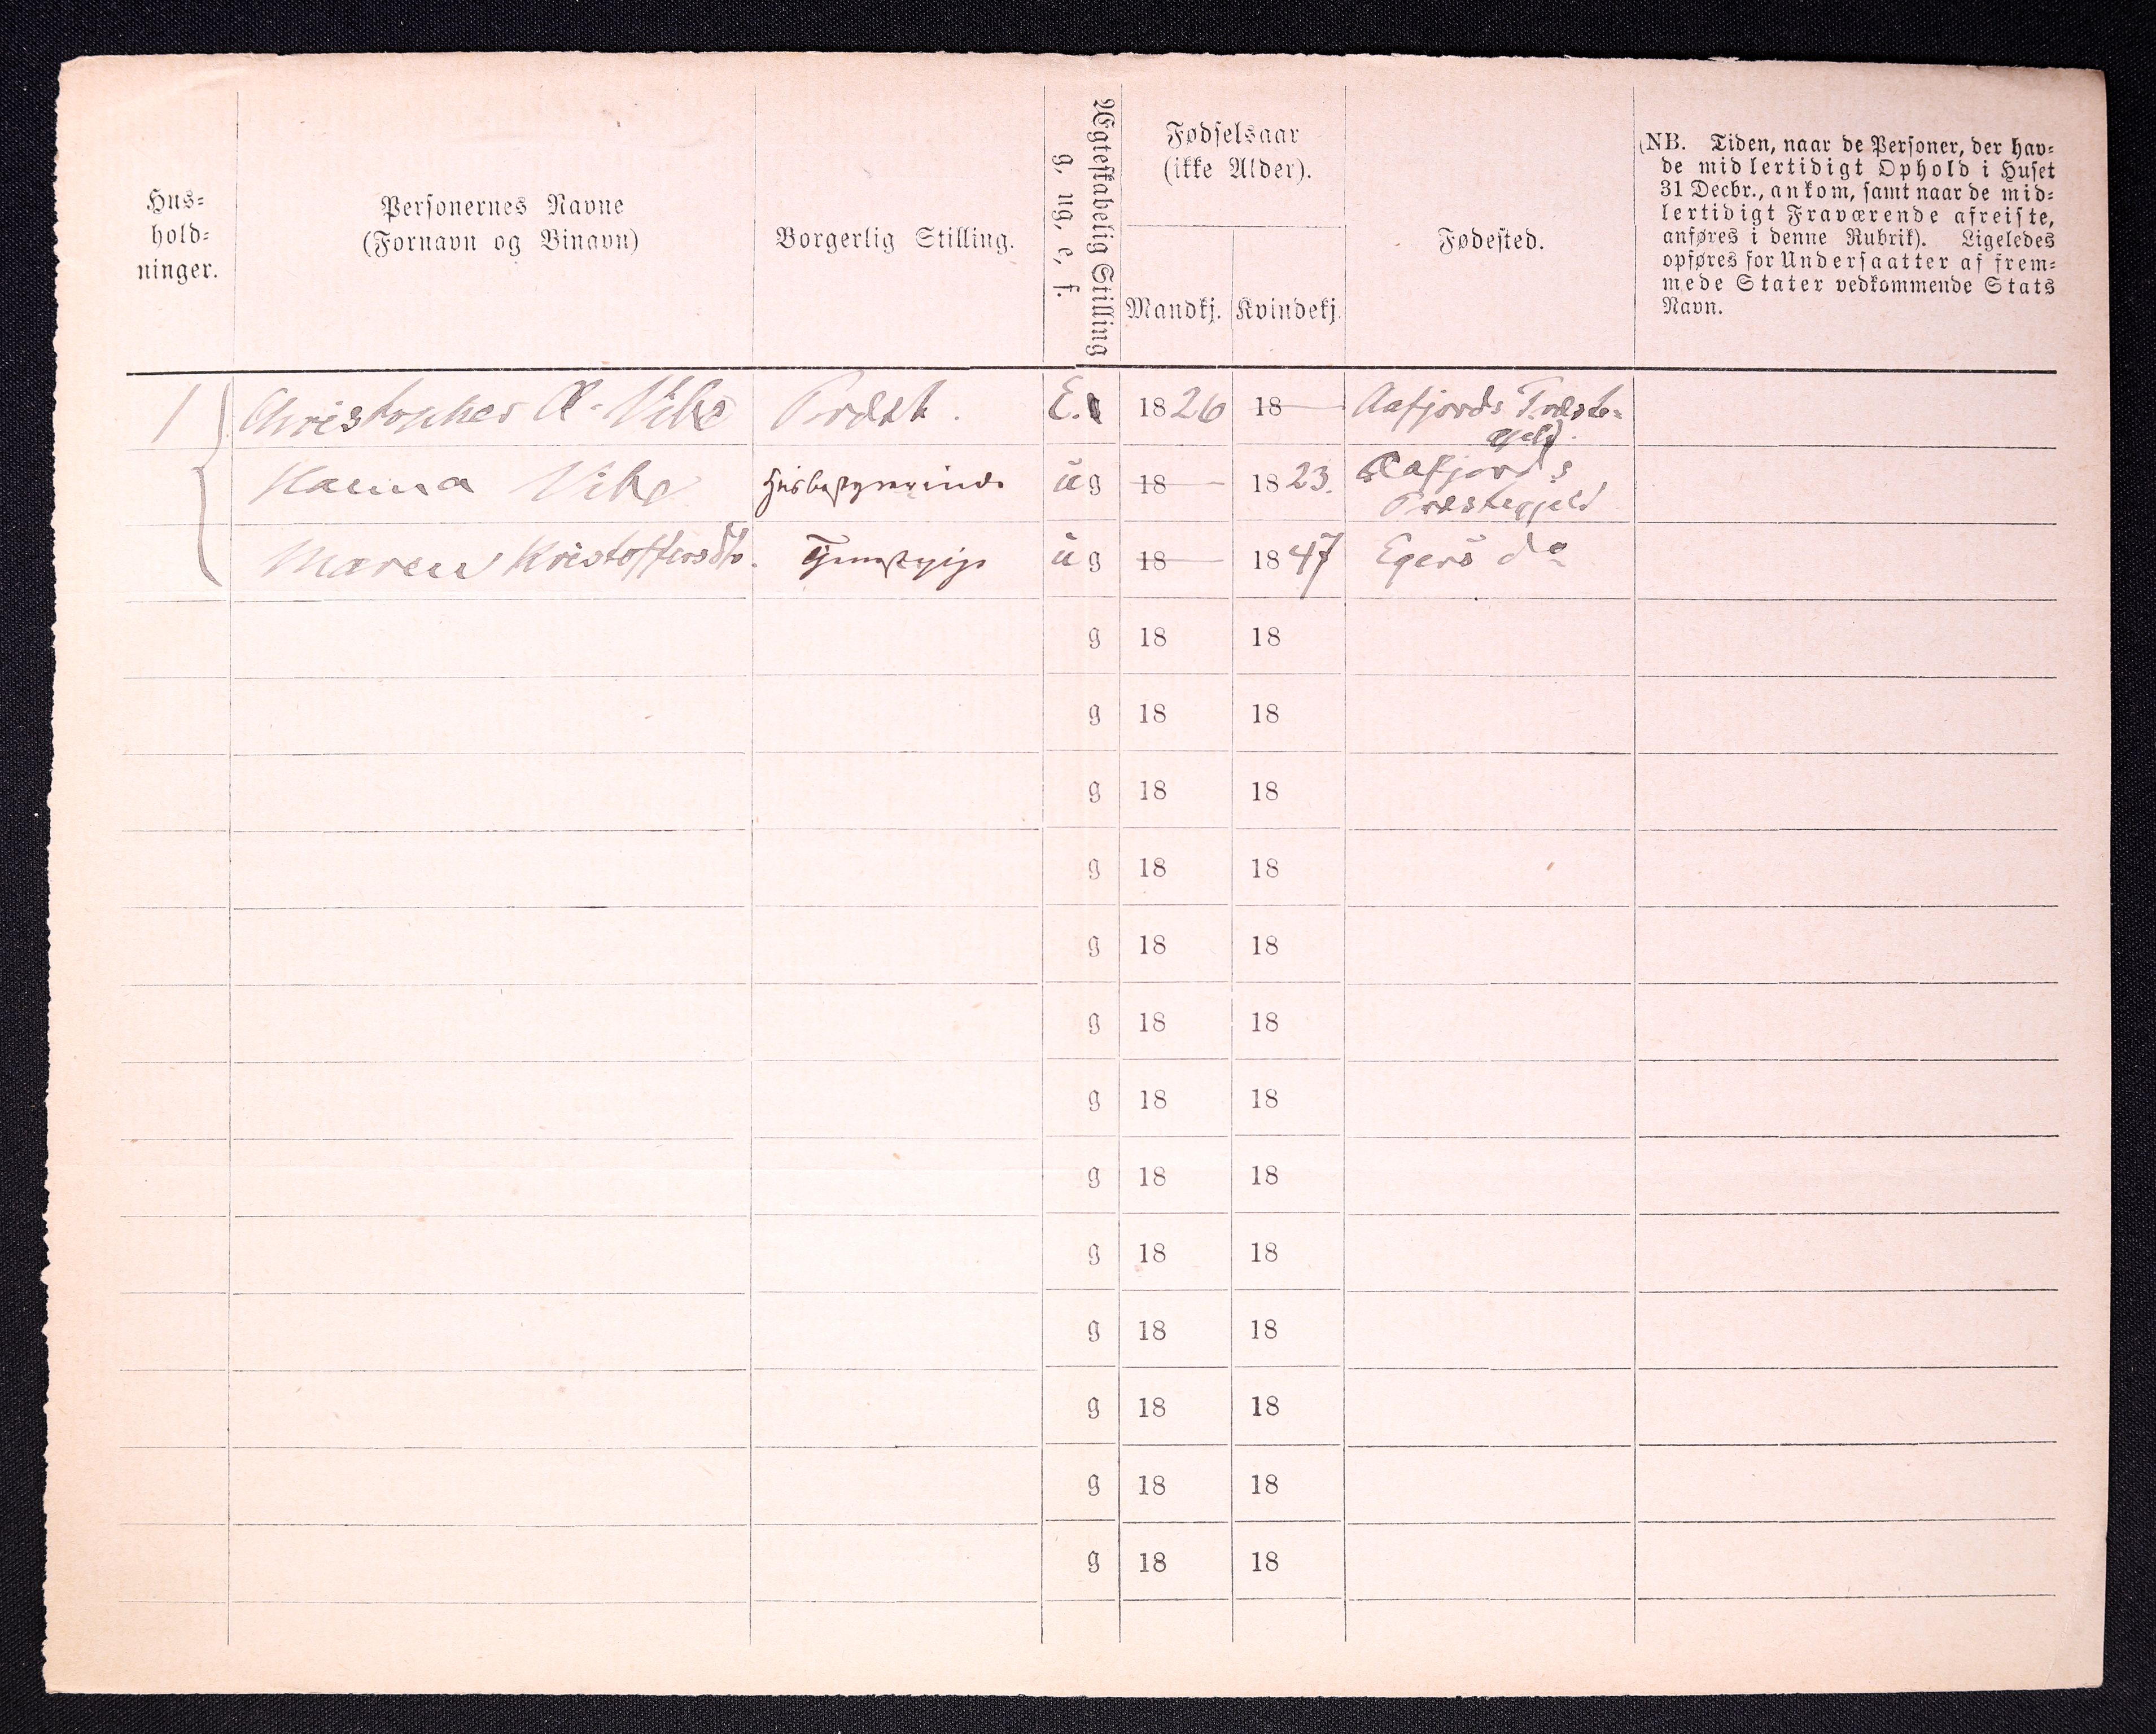 Hus=
hold=
ninger.
Personernes Navne
(Fornavn og Binavn)
Borgerlig Stilling.
Ægteskabelig Stilling
g, ug, e, f.
Fødselsaar
(ikke Alder).
Mandkj. Kvindekj.
Fødested.
(NB. Tiden, naar de Personer, der hav=
de midlertidigt Ophold i Huset
31 Decbr., ankom, samt naar de mid=
lertidigt Fraværende afreiste,
anføres i denne Rubrik). Ligeledes
opføres for Undersaatter af frem=
mede Stater vedkommende Stats
Navn.
1 Christopher A. Vibe Prdst. E. 1826 18 Aafjords Præste=
gjeld.
Hanna Vibe Husbestyrerinde ug 18 1823. Aafjords
Præstegjeld
Maren Kristoffersdtr. Tjenestepige ug 18 1847 Egerö do
g 18 18
g 18 18
g 18 18
g 18 18
g 18 18
g 18 18
g 18 18
g 18 18
g 18 18
g 18 18
g 18 18
g 18 18
g 18 18